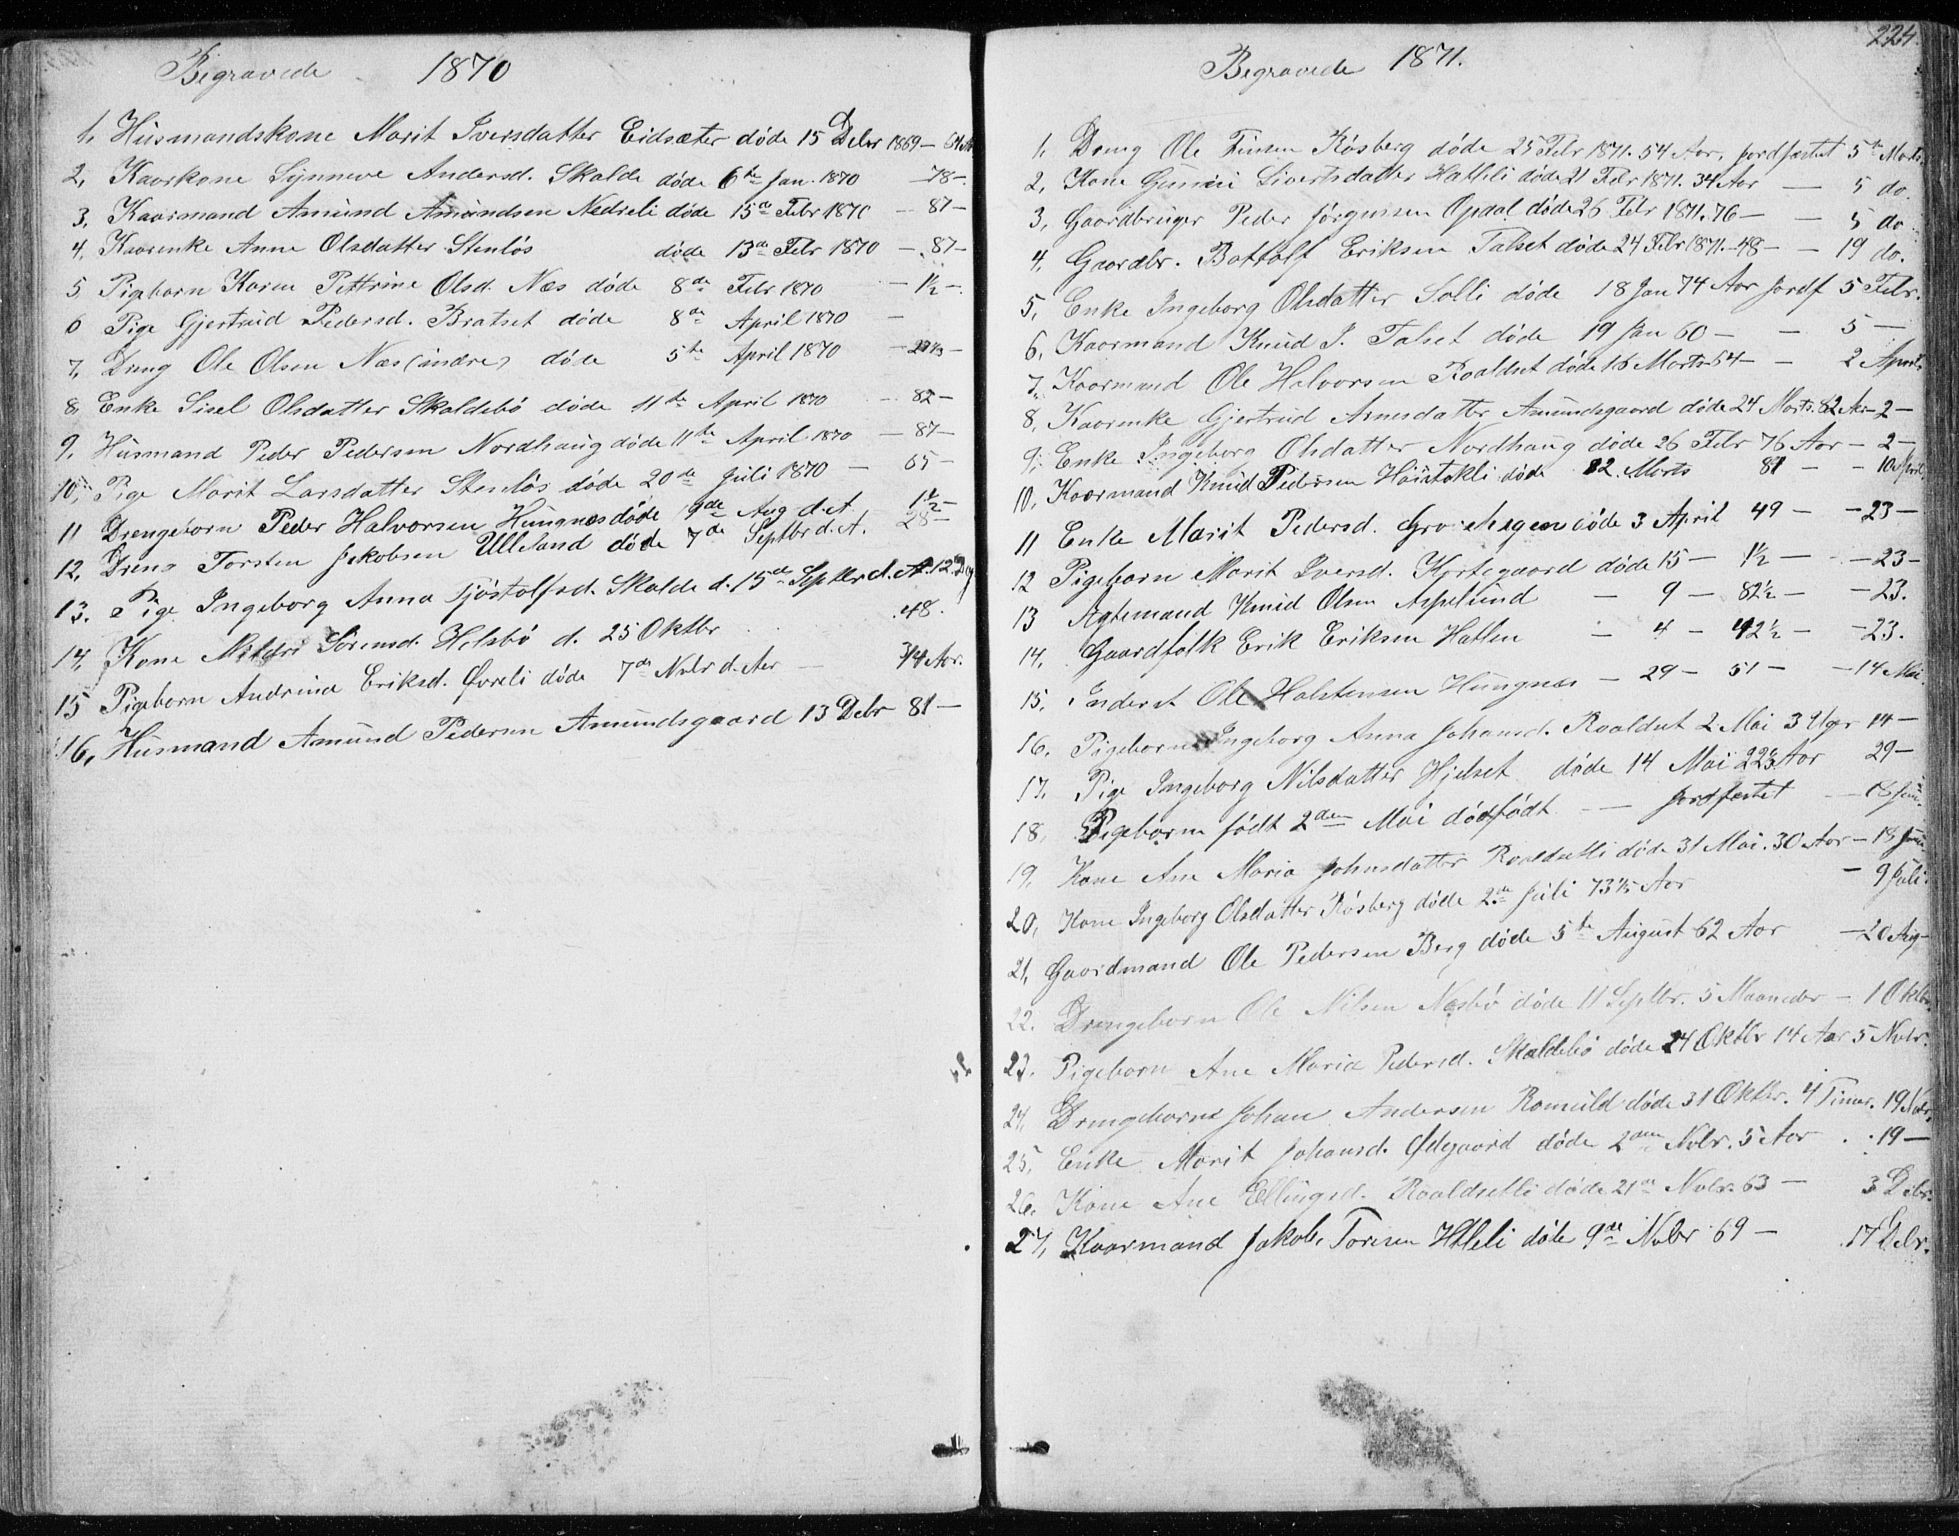 Begravede 1870
1, Husmandskone Marit Iversdatter Eidsæter døde 15 Debr 1869 —
2, Kaarkone Synneve Andersd. Skalde døde 6te Jan. 1870 — 78 —
3, Kaarmand Amund Amundsen Nedreli døde 15de Febr 1870 — 87 —
4, Kaarenke Anne Olsdatter Stenløs døde 13de Febr 1870 — 87 —
5 Pigebarn Karen Pettrine Olsd. Næs døde 8de Febr 1870 — 1½ —
6 Pige Gjertrud Pedersd. Bratset døde 8de April 1870 —
7, Dreng Ole Olsen Næs (indre) døde 5te April 1870 —
8, Enke Sisel Olsdatter Skaldebø døde 11te April 1870 — 82 —
9, Husmand Peder Pedersen Nordhaug døde 11te April 1870 — 87 —
10, Pige Marit Larsdatter Stenløs døde 20de Juli 1870 — 65 —
11 Drengebarn Peder Halvorsen Hungnes døde 9de Aug d.A. 1½ —
12, Dreng Torsten Jakobsen Ulleland døde 7de Septbr d.A. 28 —
13. Pige Ingeborg Anna Tjøstolfsd. Skalde d. 15de Septbr d. A. 12 Dg
14, Kone Mildri Sørensd. Helsbø d. 25 Oktbr 48.
15 Pigebarn Andrina Eriksd. Øvreli døde 7de Nvbr d. Aar — 3/4 Aar.
16, Husmand Amund Pedersen Amundsgaard 13 Debr 81 —
224.
Begravede 1871.
1, Dreng Ole Finsen Røsberg døde 25 Febr 1871. 54 Aar, jordfæstet 5te Marts
2, Kone Gunnri Sivertsdatter Hatleli døde 21 Febr 1871. 34 Aar — 5 do.
3, Gaardbruger Peder Jørgensen Opdal døde 26 Febr 1871. 76 — — 5 do
4, Gaardbr. Bottolf Eriksen Talset døde 24 Febr 1871. 48 — — 19 do.
5, Enke Ingeborg Olsdatter Solli døde 18 Jan 74 Aar Jordf 5 Febr.
6, Kaarmand Knud J. Talset døde 19 Jan 60 — — 5 —
7, Kaarmand Ole Halvorsen Roaldset døde 16 Marts 54 — — 2 April
8, Kaarenke Gjertrud Arnesdatter Amundsgaard døde 24 Marts. 82 Aar — 2 —
9, Enke Ingeborg Olsdatter Nordhaug døde 26 Febr 76 Aar — 2 —
10. Kaarmand Knud Pedersen Høistakli døde 12. Marts 81 — — 10 April
11 Enke Marit Pedersd. døde 3 April 49 — — 23 —
12 Pigebarn Marit Iversd. Kortegaard døde 15 — 1½ — — 23 —
13 Ægtemand Knud Olsen Aspelund — 9 — 82½ — — 23.
14, Gaardfolk Erik Eriksen Hatlen — 4 — 42½ — — 23.
15, Inderst Ole Halstensen Hungnes — 29 — 51 — — 14 Mai.
16. Pigebarn Ingeborg Anna Johansd. Roaldset 2 Mai 3 Uger 14 —
17. Pige Ingeborg Nilsdatter Hjelset døde 14 Mai Aar 29 —
18, Pigebarn født 2den Mai dødfødt — jordfæstet — 18 Juni.
19, Kone Ane Maria Johnsdatter Roaldsetli døde 31 Mai. 30 Aar — 18 Juni.
20, Kone Ingeborg Olsdatter Røsberg døde 2de Juli Aar — 9 Juli.
21, Gaardmand Ole Pedersen Berg døde 5te August 62 Aar — 20 Aug —
22. Drengebarn Ole Nilsen Nesbø døde 11 Septbr. 5 Maaneder — 1 Oktbr.
23. Pigebarn Ane Maria Pedersd. Skaldebø døde 24 Oktbr 14 Aar 5 Nvbr.
24, Drengebarn Johan Andersen Romuld døde 31 Oktbr. 4 Timer. 19 Nvbr.
25, Enke Marit Johansd. Ødegaard døde 2den Nvbr. 5 Aar . . 19 —
26. Kone Ane Ellingsd. Roaldsetli døde 21de Nvbr. 63 — 3 Debr.
27, Kaarmand Jakob Toresen Hatleli døde 9de Nvbr 69 — 17 Debr.